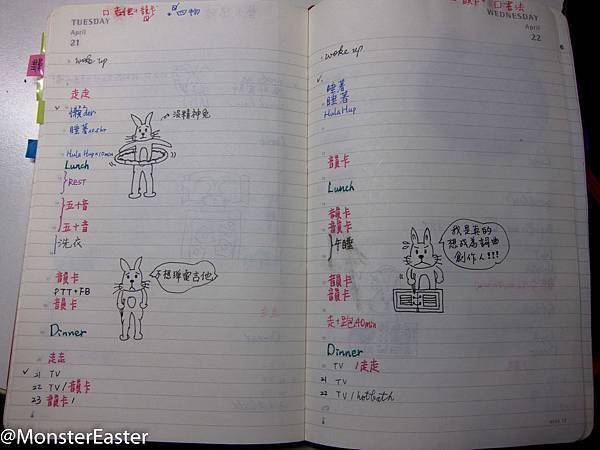 TUESDAY
April
21
wake up
走走
懶der
睡著
Hula Hup
Lunch
REST
五十音
五十音
洗衣
韻卡
PTT+FB
韻卡
Dinner
走走
21 TV
22 TV/韻卡
23 韻卡/
沒精神兔
不想彈電吉他
四物
書法
WEDNESDAY
April
22
woke up
睡著
睡著
Hula Hup
韻卡
Lunch
韻卡
韻卡
午睡
韻卡
韻卡
走+跑40min
Dinner
TV /走走
21 TV
22 TV/hotbath
我是真的
想成為詞曲
創作人!!!
@MonsterEaster